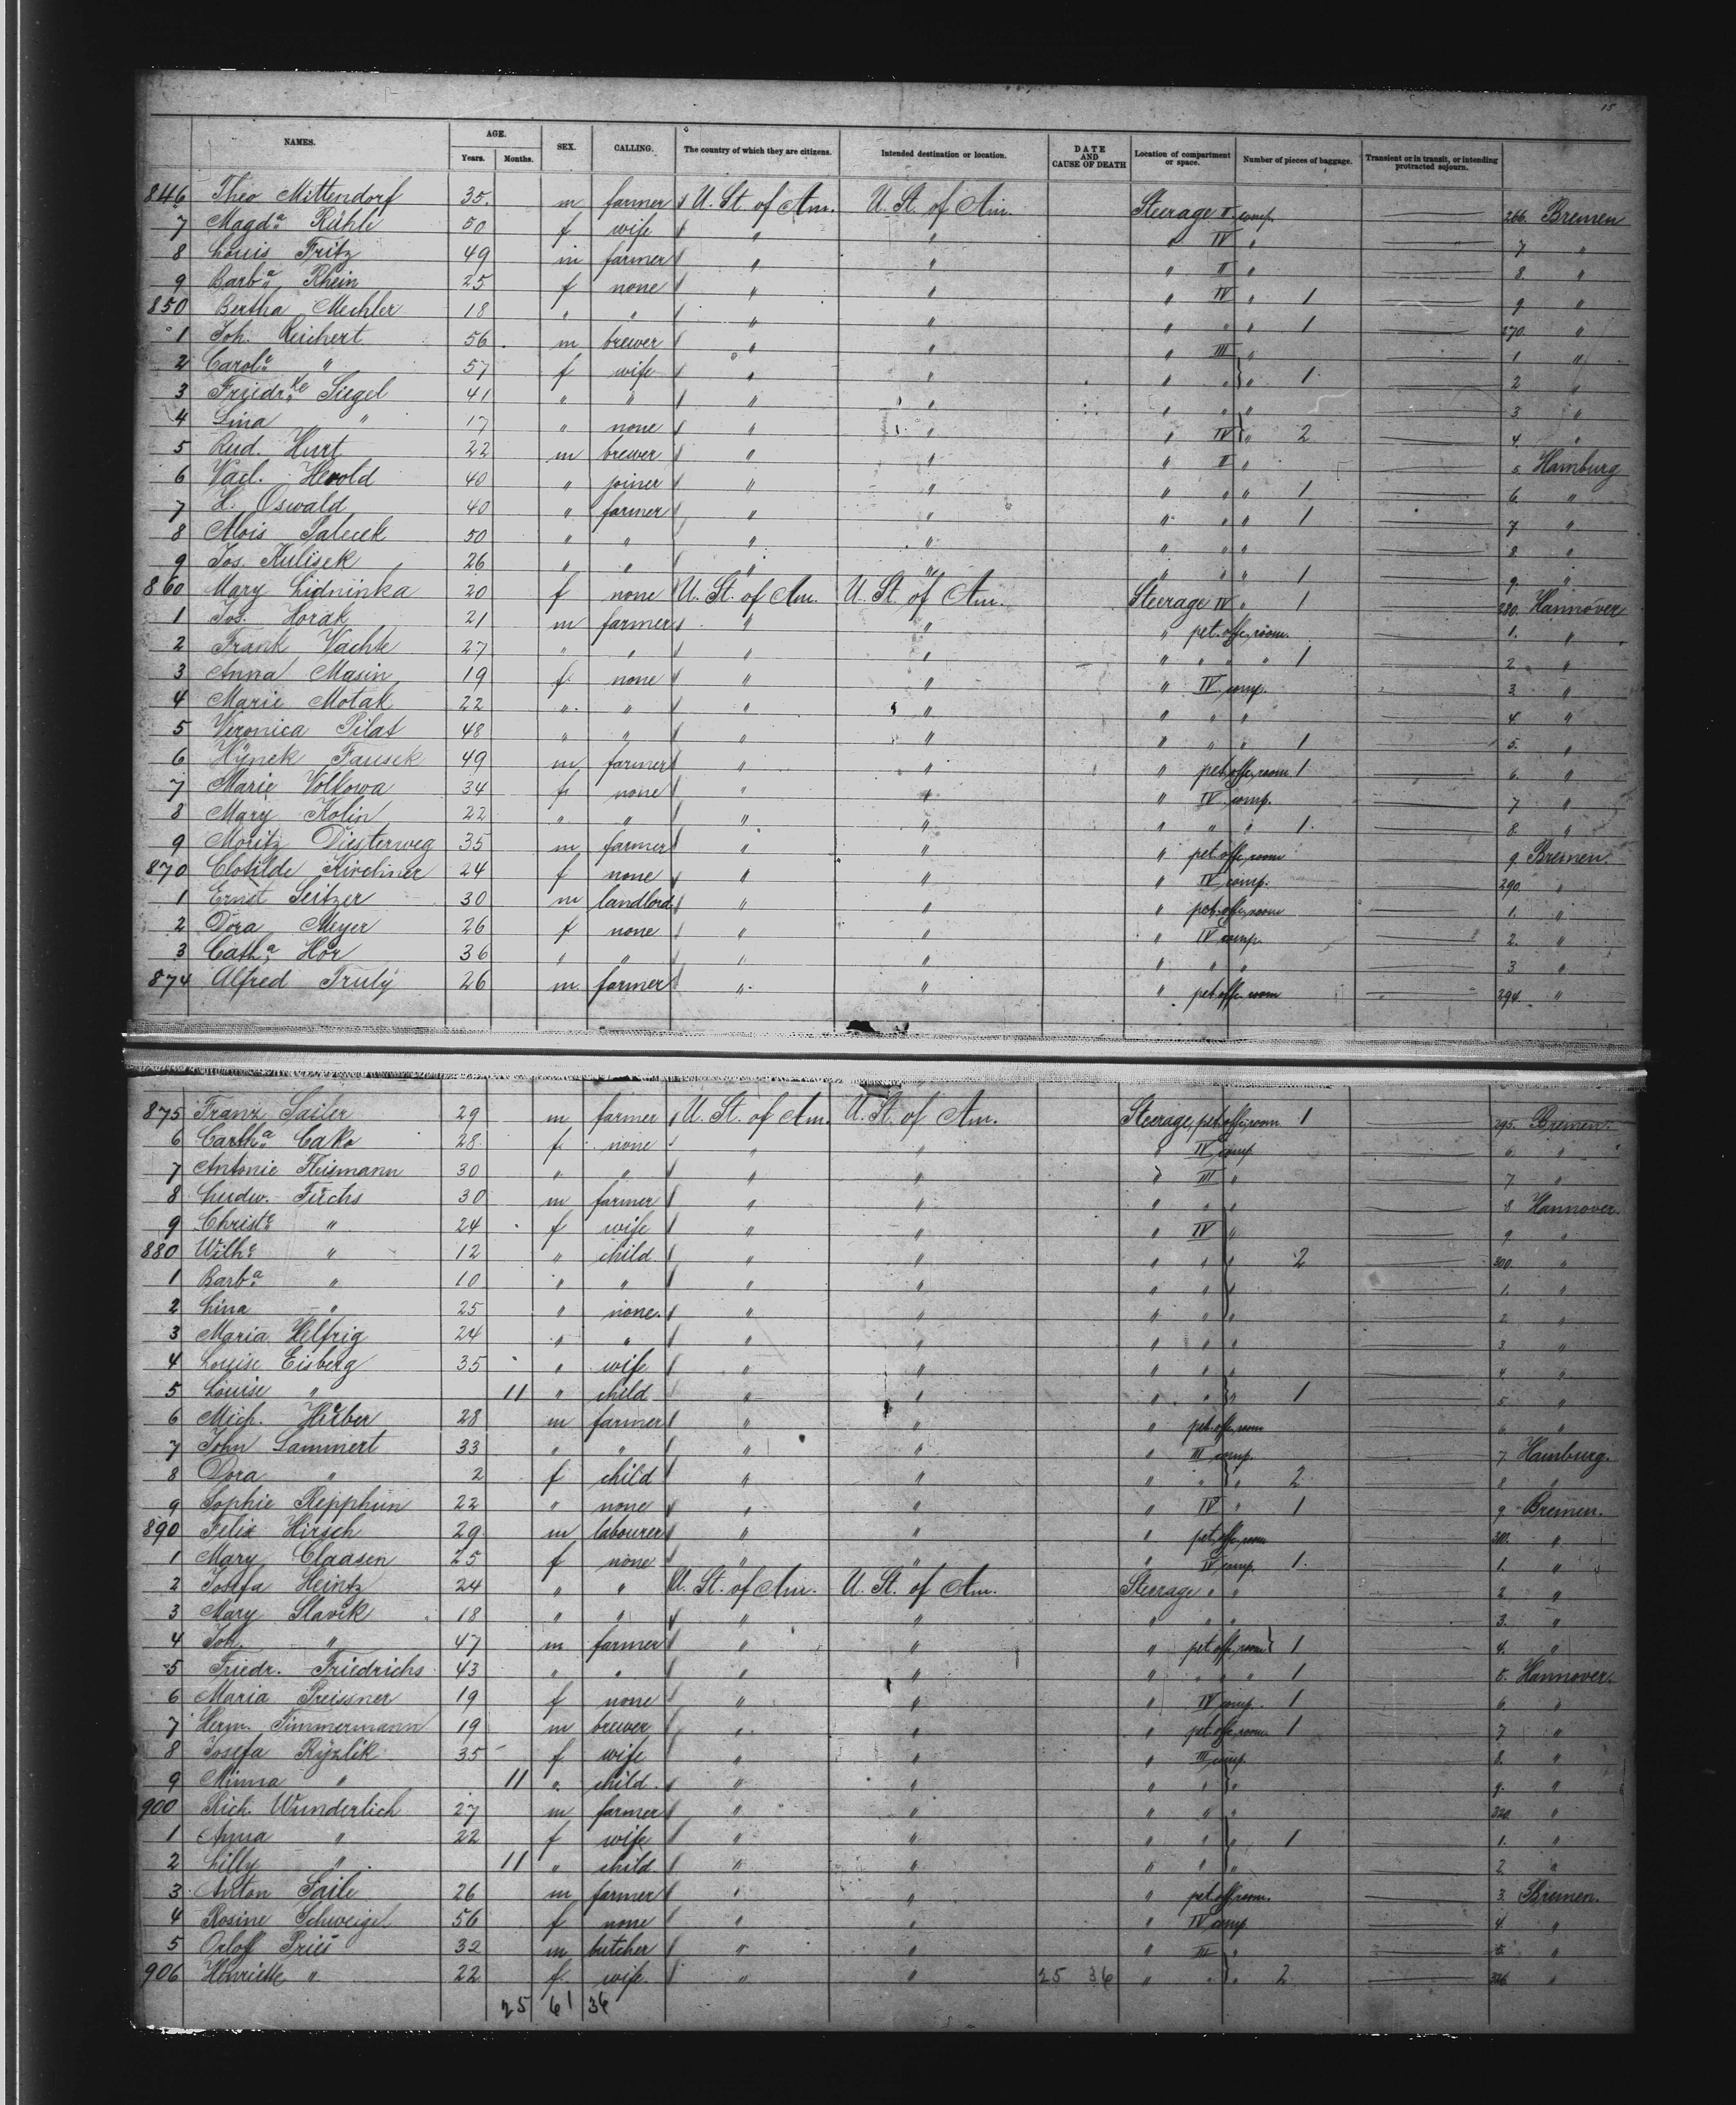 15
NAMES. AGE. Years. Months. SEX. CALLING. The country of which they are citizens. Intended destination or location. DATE AND CAUSE OF DEATH Location of compartment or space. Number of pieces of baggage. Transient or in transit, or intending protracted sojourn.
846 Theo Mittendorf 35. m farmer U. St. of Am. U. St. of Am. Steerage II comp. 266. Bremen
7 Magda Rühle 50 f wife " " " IV " 7 "
8 Louis Fritz 49 m farmer " " " II " 8. "
9 Barba Rhein 25 f none " " " IV " 1 9 "
850 Bertha Mechler 18 " " " " " " " 1 270. "
1 Joh. Reichert 56 m brewer " " " III " 1 "
2 Carole " 57 f wife " " " " " 1 2 "
3 Friedrke Siegel 41 " " " " " " " 3 "
4 Lina " 17 " none " " " IV " 2 4. "
5 Rud. Hurt 22 m brewer " " " II " 5 Hamburg
6 Vacl. Herold 40 " joiner " " " " " 1 6. "
7 K. Oswald 40 " farmer " " " " " 1 7 "
8 Alois Salecek 50 " " " " " " " 8. "
9 Jos. Kulisek 26 " " " " " " " 1 9. "
860 Mary Lidninka 20 f none U. St. of Am. U. St. of Am. Steerage IV " 1 280. Hannover
1 Jos. Horak 21 m farmer " " " pet. offc, room. 1. "
2 Frank Vachte 27 " " " " " " " " 1 2 "
3 Anna Masin 19 f none " " " IV comp. 3 "
4 Marie Motak 22 " " " " " " " 4. "
5 Veronica Pilat 48 " " " " " " " 1 5. "
6 Hynek Fausek 49 m farmer " " " pet. offc, room 1 6. "
7 Marie Volkowa 34 f none " " " IV comp. 7 "
8 Mary Kolin 22 " " " " " " " 1. 8. "
9 Moritz Diesterweg 35 m farmer " " " pet. offc, room 9 Bremen
870 Clotilde Kirchner 24 f none " " " IV comp. 290. "
1 Ernst Seitzer 30 m landlord " " " pet. offc, room 1. "
2 Dora Meyer 26 f none " " " IV comp. 2. "
3 Catha Hör 36 " " " " " " " 3 "
874 Alfred Truly 26 m. farmer " " " pet. offc. room 294. "
875 Franz Sailer 29 m farmer U. St. of Am. U. St. of Am. Steerage, pet. offc, room 1 295. Bremen.
6 Cartha Cako 28. f. none " " " IV comp 6. "
7 Antonie Fleismann 30 " " " " " III " 7 "
8 Ludw. Fuchs 30 m farmer " " " " " 8 Hannover.
9 Christe " 24 f wife " " " IV " 9 "
880 Wilhe " 12 " child " " " " " 2 300. "
1 Barba " 10 " " " " " " " 1. "
2 Lina " 25 " none. " " " " " 2 "
3 Maria Helfrig 24 " " " " " " " 3. "
4 Louise Eisberg 35 " wife " " " " " 4. "
5 Louise " 11 " child " " " " " 1 5. "
6 Mich. Huber 28 m farmer " " " pet. offc, room 6 "
7 John Lammert 33 " " " " " III comp. 7 Hamburg.
8 Dora " 2 f child " " " " " 2. 8. "
9 Sophie Repphun 22 " none " " " IV " 1 9 Bremen.
890 Felix Hirsch 29 m labourer " " " pet. offc, room 310. "
1 Mary Claasen 25 f none " " " IV comp. 1. 1. "
2 Josefa Heintz 24 " " U. St. of Am. U. St. of Am. Steerage " " 2. "
3 Mary Slavik 18 " " " " " " " 3. "
4 Joh. " 47 m farmer " " " pet. offc, room 1 4. "
5 Friedr. Friedrichs 43 " " " " " " " " 1 5. Hannover.
6 Maria Preissner 19 f none " " " IV comp. 1 6. "
7 Herm. Timmermann 19 m brewer " " " pet. offc, room 1 7 "
8 Josefa Ryzlik 35 f wife " " " III comp. 8. "
9 Minna " 11 " child. " " " " " 9. "
900 Rich. Wunderlich 27 m farmer " " " " " 320. "
1 Anna " 22 f wife " " " " " 1 1. "
2 Lilly " 11 " child " " " " " 2 "
3 Anton Saile 26 m farmer " " " pet. off room. 3. Bremen.
4 Rosine Schweigel 56 f none " " " IV comp 4. "
5 Orloff Pries 32 m butcher " " " III " 5 "
906 Henriette " 22 f. wife " " 25 36 " " " 2 326 "
25 61 36